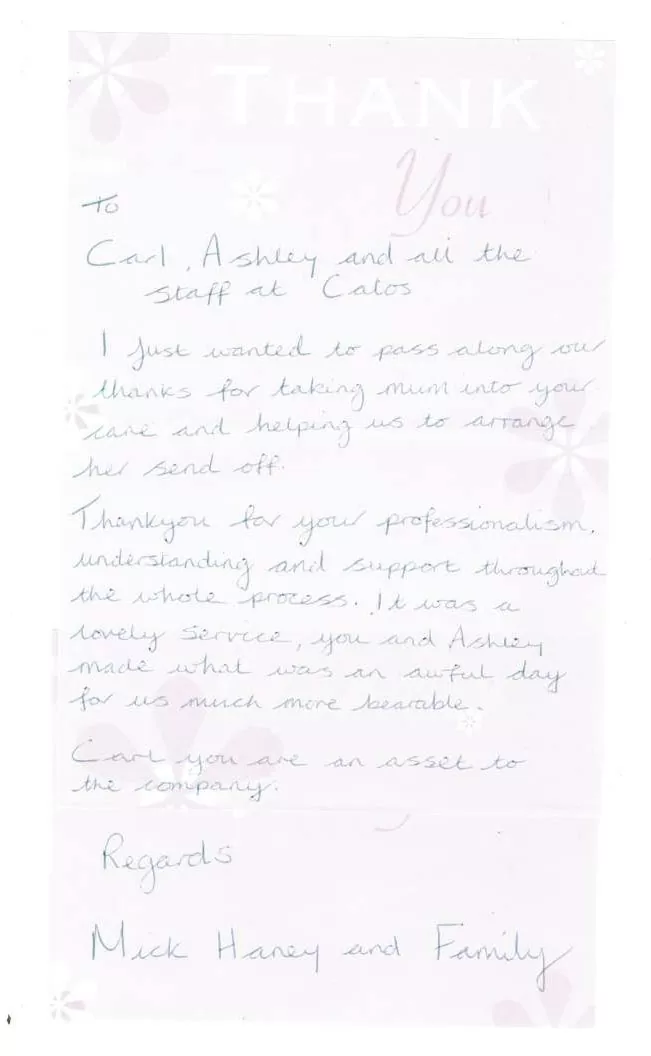 THANK
You
To
Carl, Ashley and all the
staff at Catos
I just wanted to pass along our
thanks for taking mum into your
care and helping us to arrange
her send off.
Thankyou for your professionalism,
understanding and support throughout
the whole process. It was a
lovely service, you and Ashley
made what was an awful day
for us much more bearable.
Carl you are an asset to
the company.
Regards
Mick Haney and Family